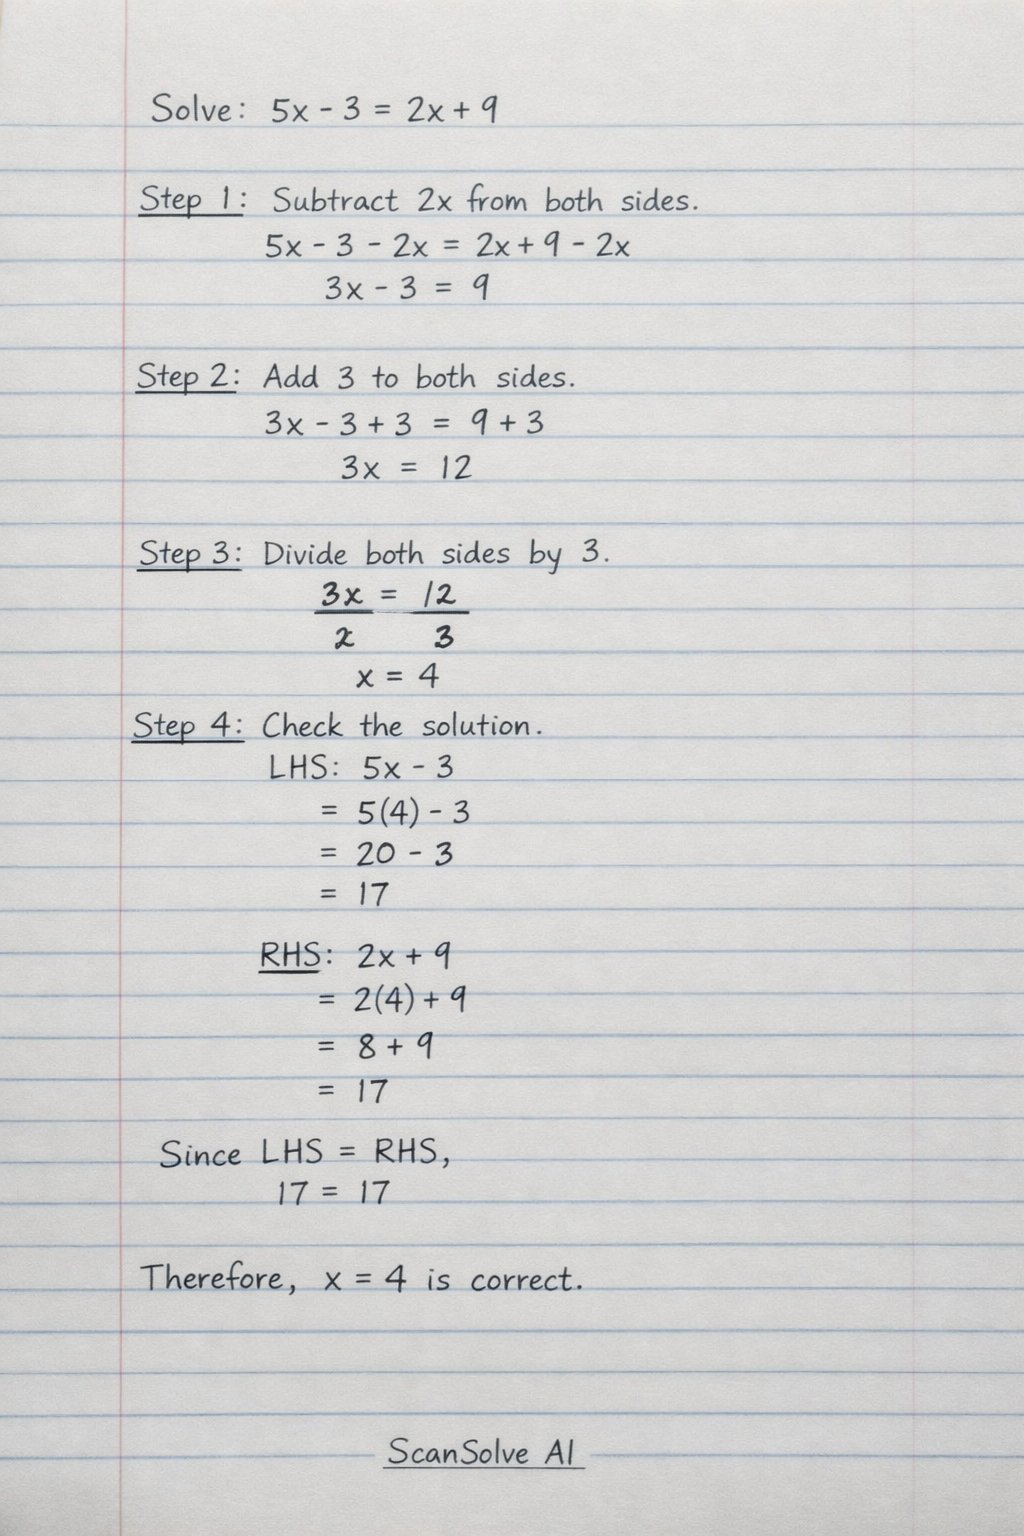 Solve: 5x - 3 = 2x + 9
Step 1: Subtract 2x from both sides.
5x - 3 - 2x = 2x + 9 - 2x
3x - 3 = 9
Step 2: Add 3 to both sides.
3x - 3 + 3 = 9 + 3
3x = 12
Step 3: Divide both sides by 3.
3x = 12
2 3
x = 4
Step 4: Check the solution.
LHS: 5x - 3
= 5(4) - 3
= 20 - 3
= 17
RHS: 2x + 9
= 2(4) + 9
= 8 + 9
= 17
Since LHS = RHS,
17 = 17
Therefore, x = 4 is correct.
ScanSolve AI